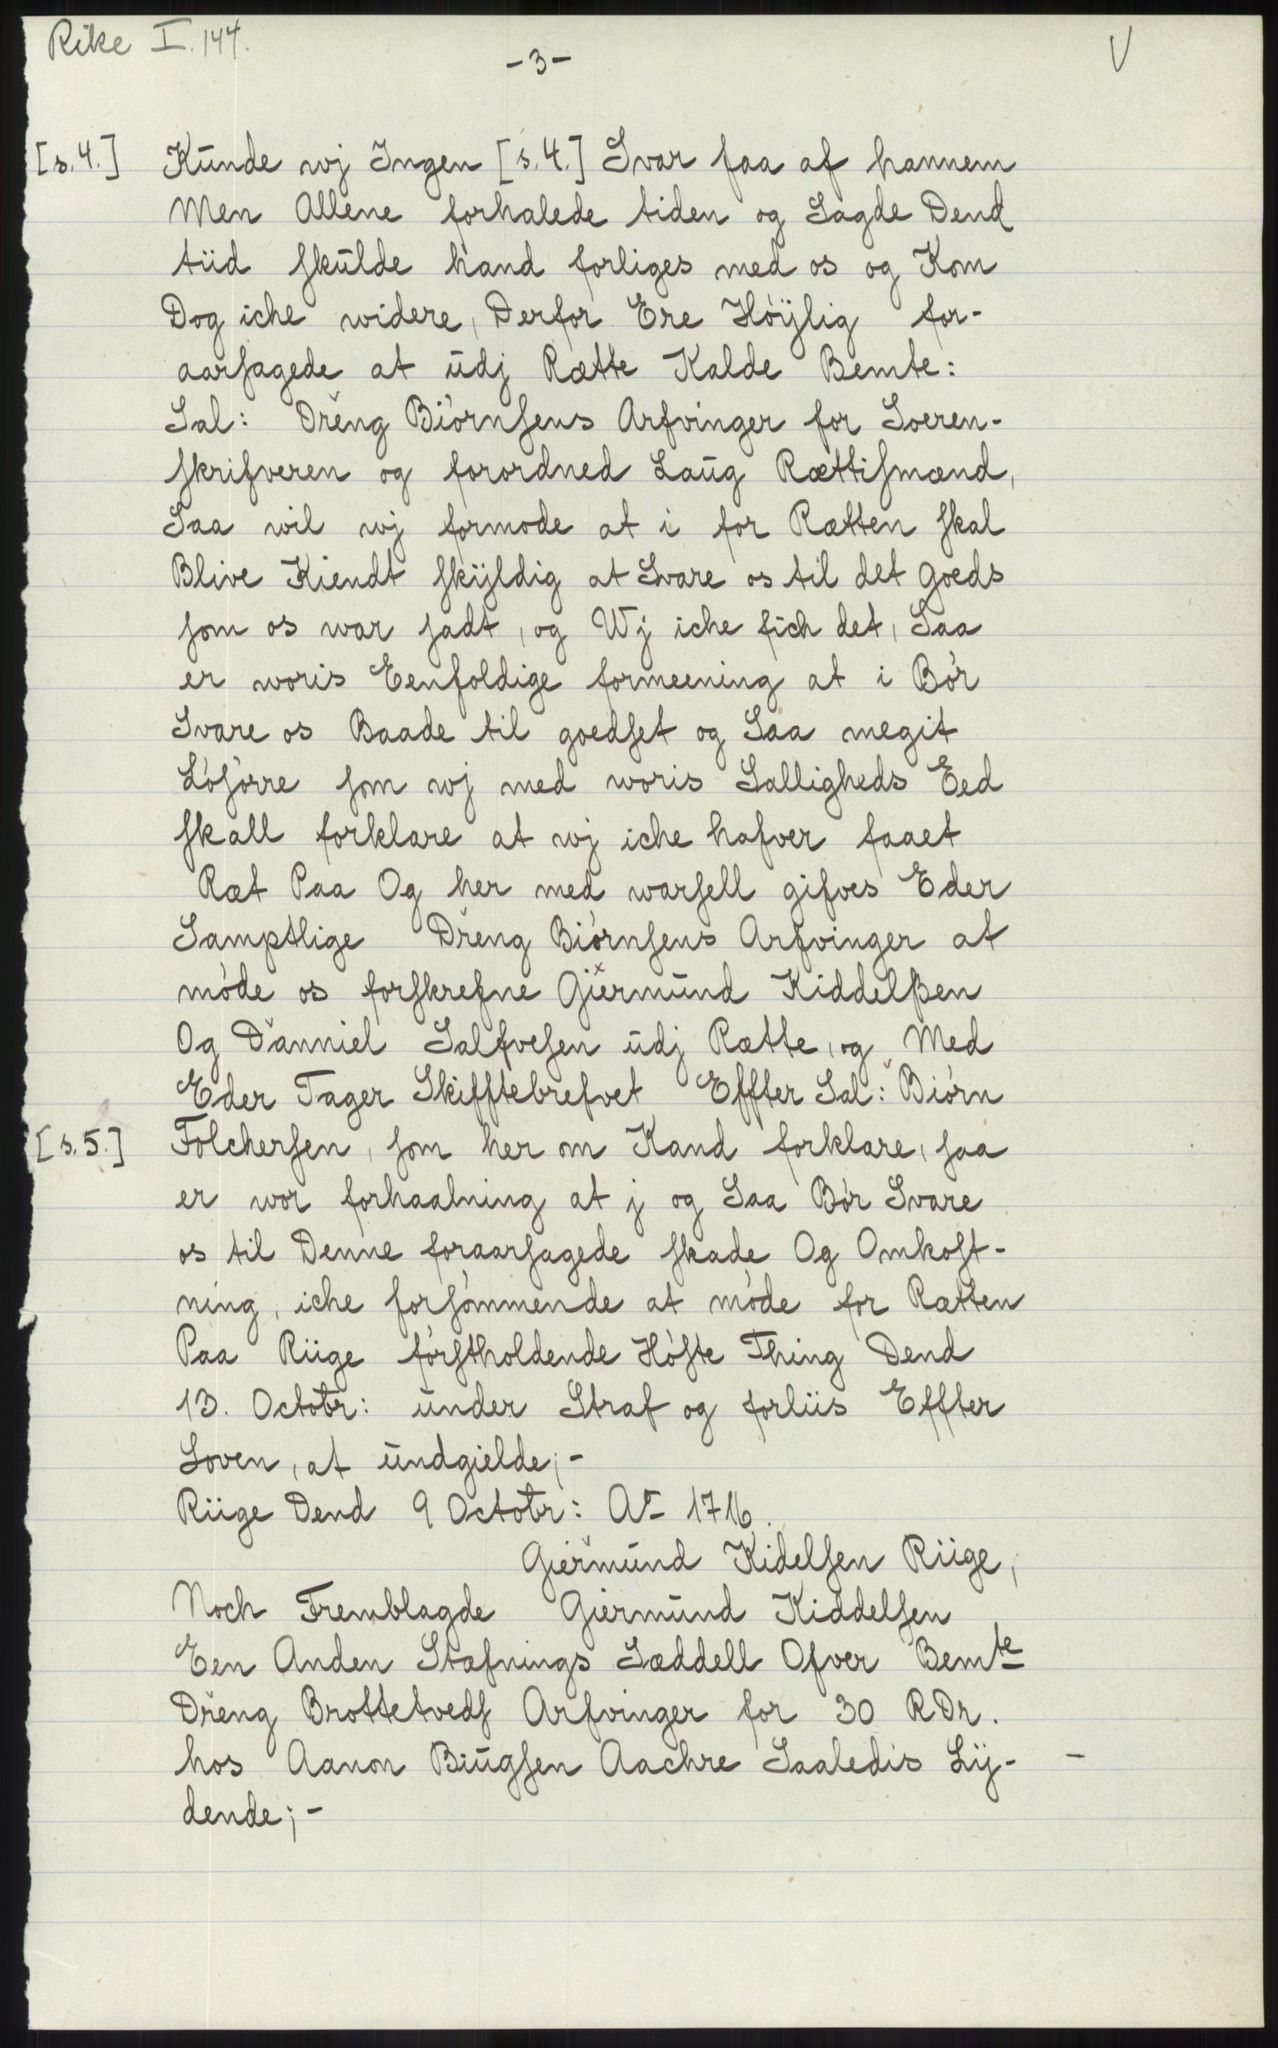 Rike I. 144.
-3-
V
[s.4.] Kunde wj Ingen [s.4.] Svar faa af hannem
Men Allene forhalede tiden og Sagde Dend
tiid skulde hand forliges med os og Kom
Dog iche widere, Derfor Ere Höÿlig for-
aarsagede at udj Rætte Kalde Bemte:
Sal: Dreng Biörnsens Arfvinger for Soeren-
skrifveren og forordned Laug Rættismænd,
Saa wil wj formode at i for Rætten skal
Blive Kiendt skÿldig at Svare os til det goeds
som os war sadt, og Wj iche fich det, Saa
er woris Eenfoldige formeening at i Bör
Svare os Baade til goedset og Saa megit
Lösörre som wj med woris Salligheds Eed
skall forklare at wj iche hafver faaet
Ræt Paa Og her med warsell gifves Eder
Samptlige Dreng Biörnsens Arfvinger at
möde os forskrefne Giermund Kiddelßen
Og Danniel Salfvesen udj Rætte, og Med
Eder Tager Skifftebrefvet Effter Sal: Biörn
[s.5.] Folchersen, som her om Kand forklare, saa
er wor forhaalning at j og Saa Bör Svare
os til Denne foraarsagede skade Og Omkost-
ning, iche forsömmende at möde for Rætten
Paa Riige förstholdende Höste Thing Dend
13. Octobr: under Straf og forliis Effter
Loven, at undgielde;-
Riige Dend 9 Octobr: Ao 1716.
Giermund Kidelsen Riige,
Noch Fremblagde Giermund Kiddelsen
Een Anden Stæfnings Sæddell Ofver Bemte
Dreng Brottetveds Arfvinger for 30 RDr.
hos Aanon Biugsen Aachre Saaledis Lÿ- -
dende;-